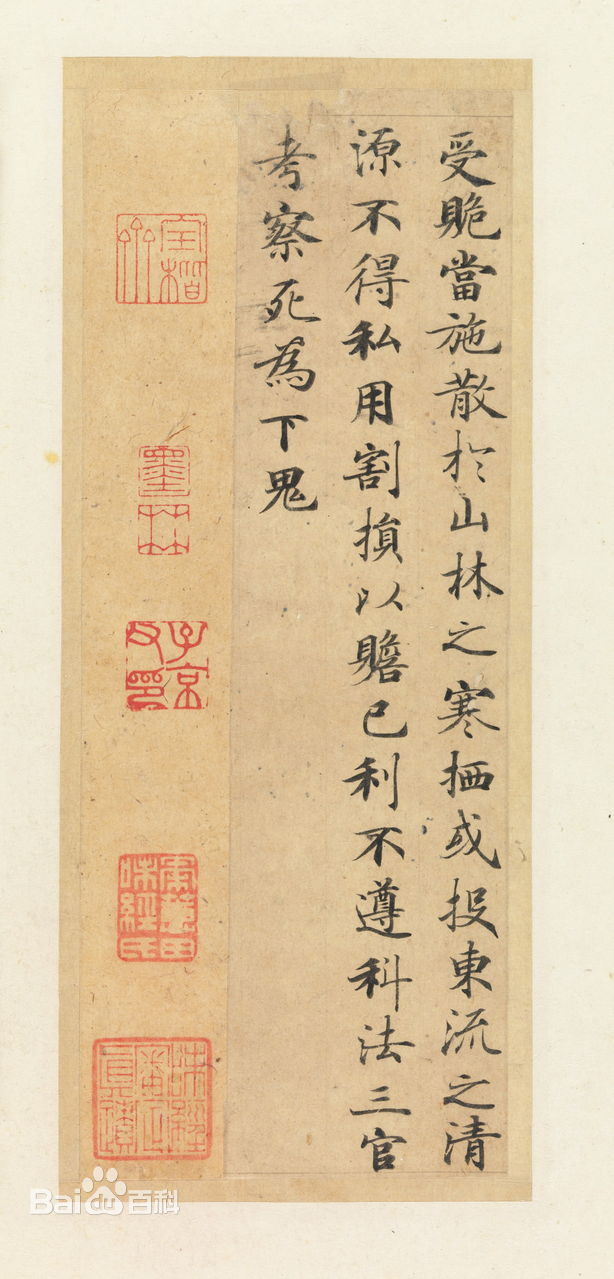 受賕當施散於山林之寒栖或投東流之清
源不得私用割損以贍己利不遵科法三官
考察死為下鬼
墨林
子京父印
Bai百科